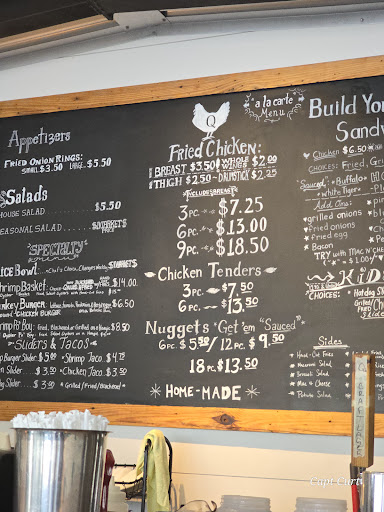 Appetizers
FRIED ONION RINGS:
SMALL $3.50 LARGE $5.50
Salads
HOUSE SALAD ........ $5.50
SEASONAL SALAD ........ $MARKET PRICE
SPECIALTY
RICE BOWL
Shrimp Basket: $14.00
BURGER $6.50
CHICKEN BURGER
Po'Boy: Fried, Blackened or Grilled $8.50
SLIDERS & TACOS
Burger Slider $5.00 • Shrimp Taco $4.75
Slider ... $3.50 • Chicken Taco $3.50
Slider ... $3.50 * Grilled / Fried / Blackened *
Q
Fried Chicken:
BREAST $3.50 WHOLE WINGS $2.00
THIGH $2.50 - DRUMSTICK $2.25
*INCLUDES BREAST*
3 PC. $7.25
6 PC. $13.00
9 PC. $18.50
Chicken Tenders
3 PC. $7.50
6 PC. $13.50
Nuggets 'Get 'em "Sauced"
6 PC. $5.50 / 12 PC. $9.50
18 PC. $13.50
HOME-MADE
a la carte
Menu
Build You
Sandw
Chicken $6.50
CHOICES: Fried, Gri
"Sauced": *Buffalo*
*White Tiger*
Add Ons:
grilled onions
fried onions
fried egg
Bacon
TRY with MAC N CH
KiD
CHOICES: • Hot dog
Sides
• Hand-Cut Fries
• Macaroni Salad
• Broccoli Salad
• Mac n Cheese
• Potato Salad
CRAFT LAZE
Capt Curt